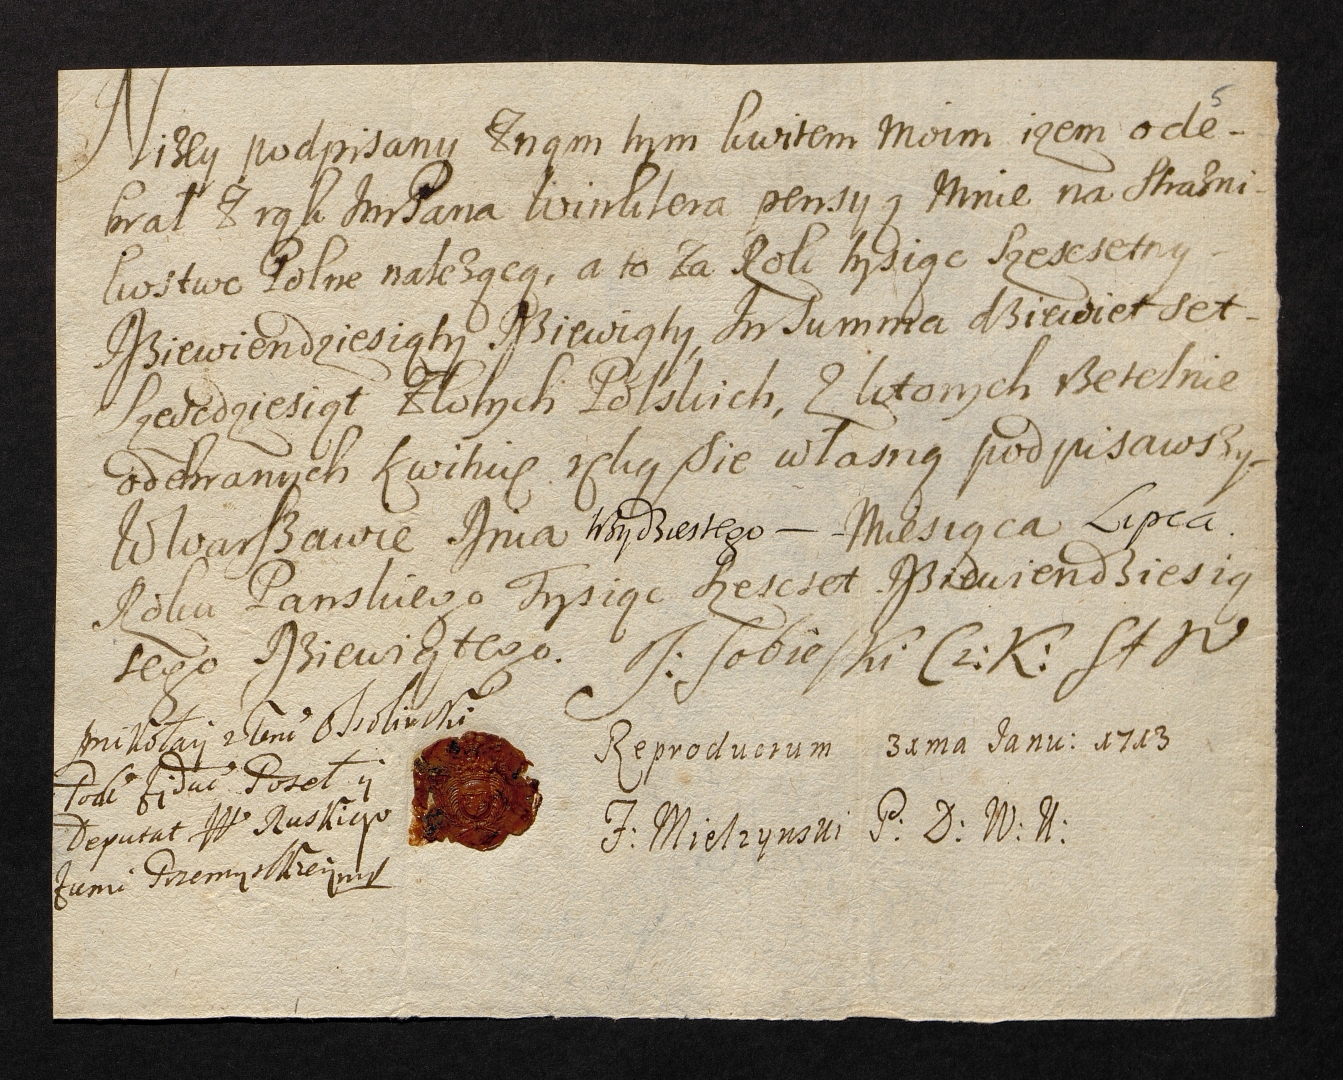 5
Nizey podpisany Znam tym kwitem moim izem ode-
brał Z rąk ImPana Winklera pensyą Mnie na Strażni-
kostwo Polne należącą, a to Za Rok tysiąc szescsetny
Dziewiendziesiąty Dziewiąty, In Summa dziewiet set
szescdziesiąt Złotych Polskich, Z ktorych Rzetelnie
odebranych kwituię ręką sie własną podpisawszy
W Warszawie Dnia trzydziestego — Miesiąca Lipca
Roku Panskiego Tysiąc szescset Dziewiendziesią
tego Dziewiątego. J: Sobieski C:K: St W
Mikołay z Ten Ossolinski
Pod Poseł y
Deputat W Ruskiego
Ziemi Przemyskiey
Reproductum 31ma Janu: 1713
F: Mielzynski P: D: W: K: